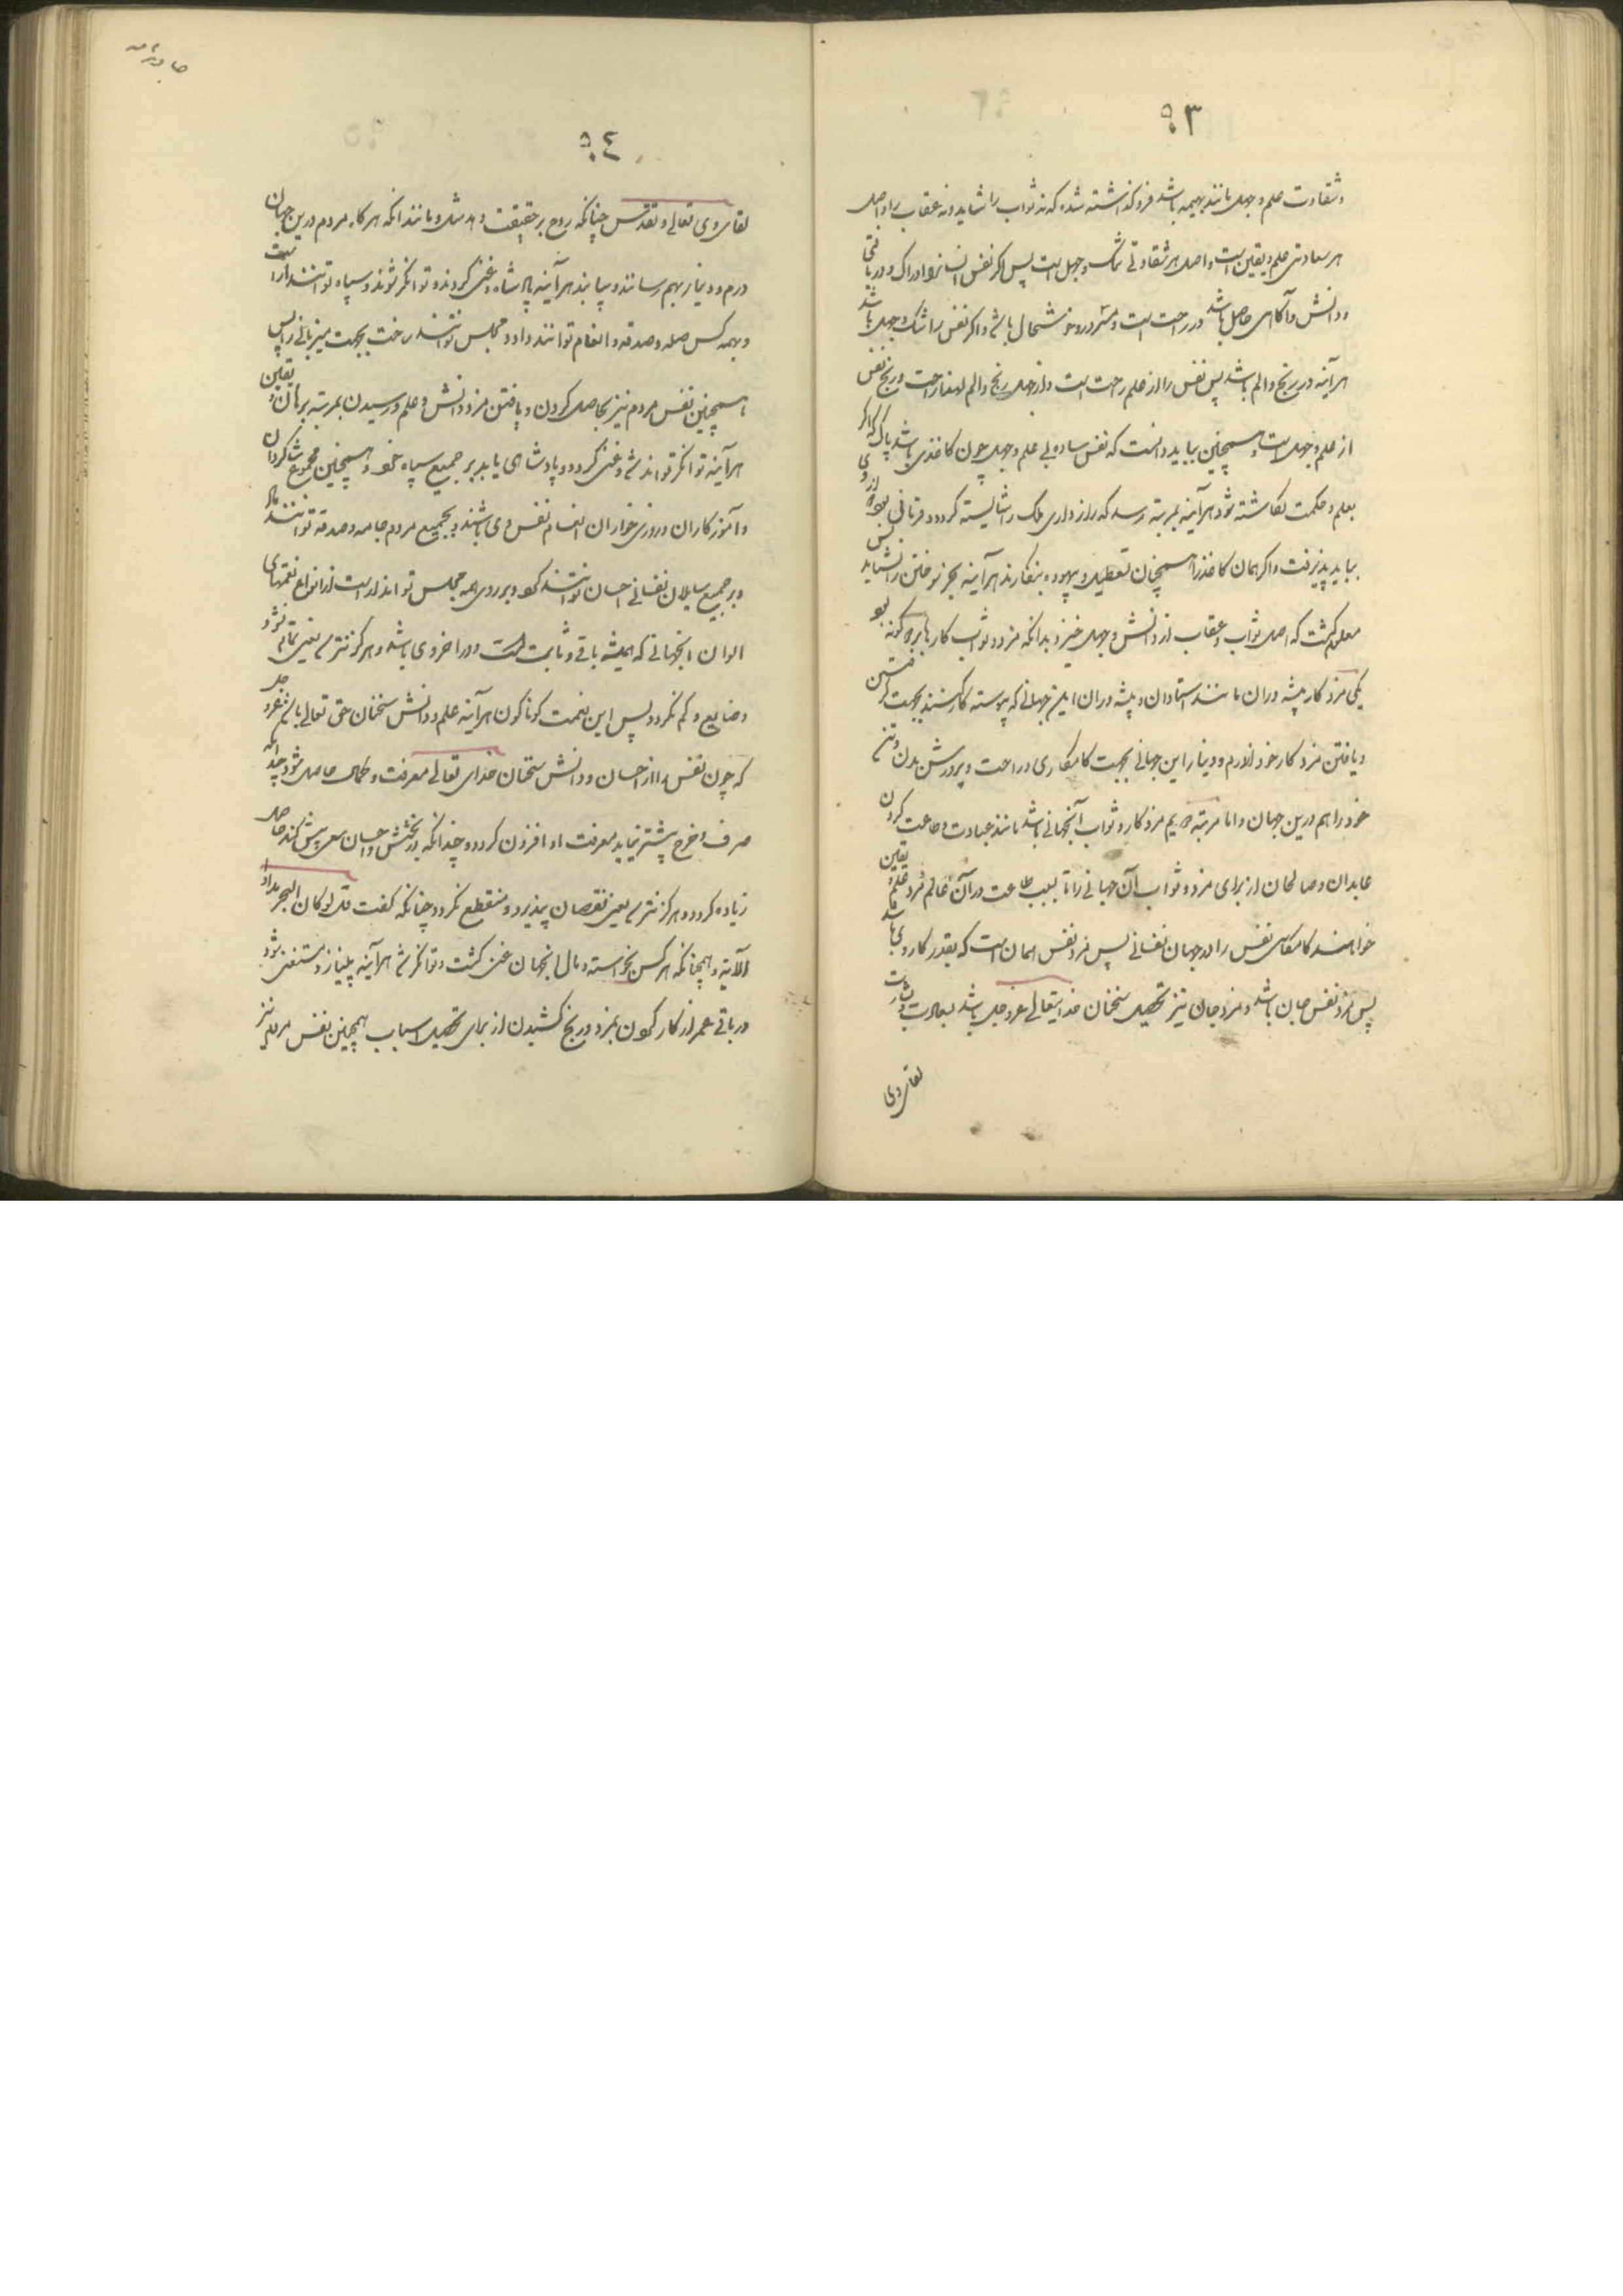 ۹۳
و شقاوت علم و جهل مانند بهیمه باشد فرو گذاشته شده که نه ثواب را شاید و نه عقاب را و اصل
هر سعادتی علم و یقین است و اصل هر شقاوتی شک و جهل است پس اگر نفس انسانرا ادراک و دریافتی
و دانش و آگاهی حاصل باشد در راحت است و مسرور و خوشحال باشد و اگر نفس را شک و جهل باشد
هرآینه در رنج و الم باشد پس نفس را از علم راحت است و از جهل رنج و الم راحت و رنج نفس
از علم و جهل است و همچنین بباید دانست که نفس ساده بی علم و جهل چون کاغذی باشد پاک که اگر
بعلم و حکمت نگاشته شود هرآینه بمرتبه رسد که رازداری ملک را شایسته گردد و
بباید پذیرفت و اگر همان کاغذ را همچنان تعطیل و بیهوده بنگارند هرآینه بجز سوختن را نشاید پس
معلوم گشت که اصل ثواب و عقاب از دانش و جهل خیزد بدانکه مزد و ثواب کارها بر دو گونه بود
یکی مزد کار پیشه‌وران مانند استادان و پیشه‌وران این جهانی که پیوسته کار کنند بجهت گرفتن
و یافتن مزد کار خود از درم و دینار این جهانی بجهت کامکاری و راحت و پرورش بدن و تن
خود را هم درین جهان و اما مرتبه دویم مزد کار و ثواب آنجهانی باشد مانند عبادت و طاعت کردن
عابدان و صالحان از برای مزد و ثواب آن جهانی را تا بسبب طاعت در آن عالم مزد علم و یقین
خواهند کامکاری نفس را در جهان نفسانی پس مزد نفس همان است که بقدر کار وی باشد
پس مزد نفس جان باشد و مزد جان نیز تحصیل سخنان خدایتعالی عز و جل باشد و بشارت
لقای وی
۹٤
لقای وی تعالی و تقدس چنانکه روح بر حقیقت و مانند آنکه هرگاه مردم درین جهان
درم و دینار بهم رسانند و بیابند هرآینه پادشاه و غنی گردند و توانگر شوند و سپاه توانند آراست
و بهمه کس صله و صدقه و انعام توانند داد و مجلس توانند ساخت بجهت میزبانی را پس
همچنین نفس مردم نیز بحاصل کردن و یافتن مزد دانش و علم و رسیدن بمرتبه برهان و یقین
هرآینه توانگر تواند شد و غنی گردد و پادشاهی یابد بر جمیع سپاه خود و همچنین مجموع شاگردان
و آموزگاران و روزی خواران اقسام نفس وی باشند و بجمیع مردم جامه و صدقه توانند داد
و بر جمیع سایلان نفسانی احسان توانند کرد و بر روی همه مجلس تواند آراست از انواع نعمتهای
الوان آنجهانی که همیشه باقی و ثابت است و در اخروی باشد و هرگز متغیر نشود
و ضایع و کم نگردد پس این نعمت گوناگون هرآینه علم و دانش سخنان حق تعالی باشد عز و جل
که چون نفس را از احسان و دانش سخنان خدای تعالی معرفت و کمال حاصل شود چندانکه
صرف و خرج بیشتر نماید معرفت او افزون گردد و چندانکه در بخشش و احسان سعی بیش کند حاصل
زیاده گردد و هرگز نقصان نپذیرد و منقطع نگردد چنانکه گفت قل لو کان البحر مدادا
الآیة و همچنانکه هر کس بخواسته و مال اینجهان غنی گشت و توانگر شد هرآینه بی‌نیاز و مستغنی شود
در باقی عمر از کار کردن بمزد و رنج کشیدن از برای تحصیل اسباب همچنین نفس مردم نیز